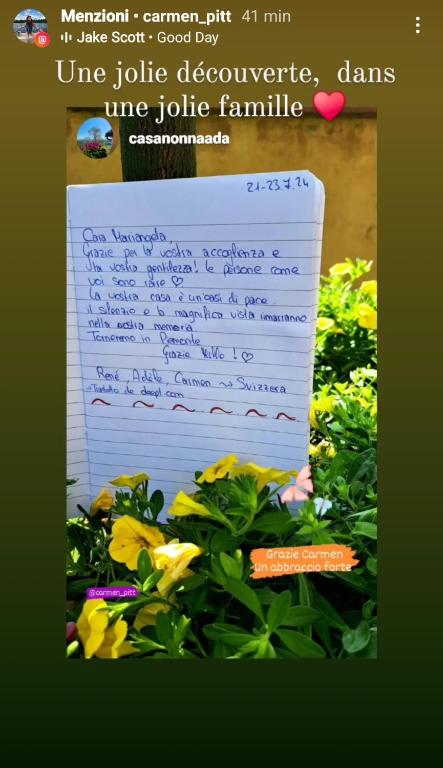 Menzioni • carmen_pitt 41 min
Jake Scott • Good Day
Une jolie découverte, dans
une jolie famille
casanonnaada
21-23.7.24
Cara Mariangela,
Grazie per la vostra accoglienza e
la vostra gentilezza! Le persone come
voi sono rare ♡
La vostra casa è un'oasi di pace.
il silenzio e la magnifica vista rimarranno
nella nostra memoria.
Torneremo in Piemonte
Grazie Mille ! ♡
René, Adèle, Carmen ~> Svizzera
Tradotto da deepl.com
Grazie Carmen
Un abbraccio forte
@carmen_pitt